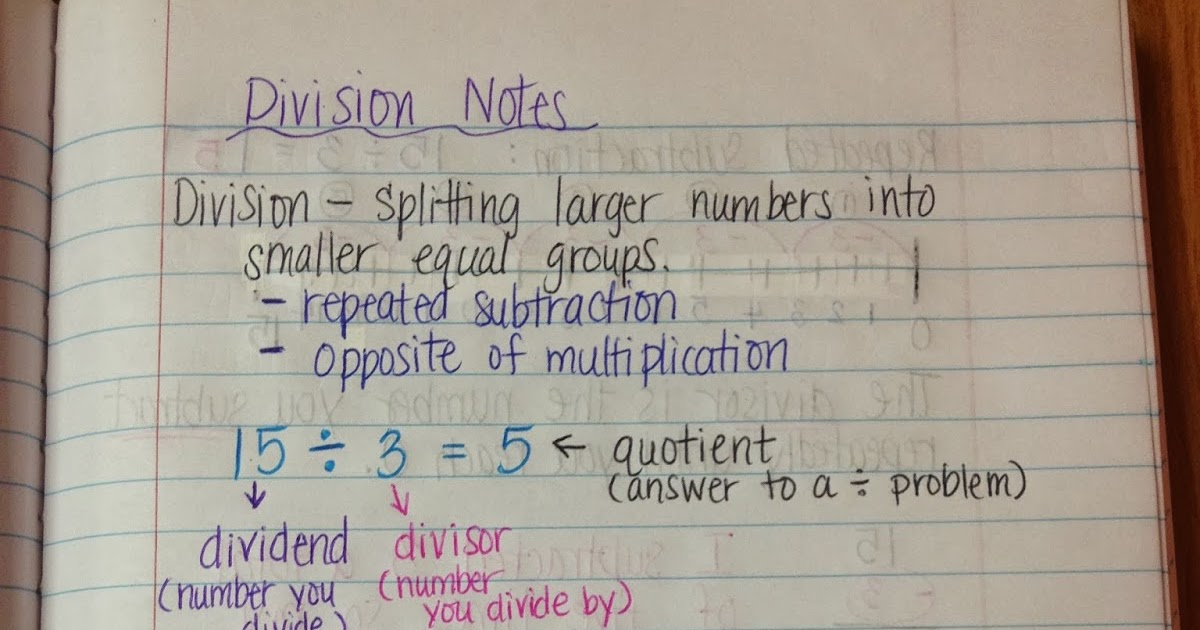 Division Notes
Division - splitting larger numbers into
smaller equal groups.
- repeated subtraction
- opposite of multiplication
15 ÷ 3 = 5 ← quotient
(answer to a ÷ problem)
↓ ↓
dividend divisor
(number you (number
divide) you divide by)